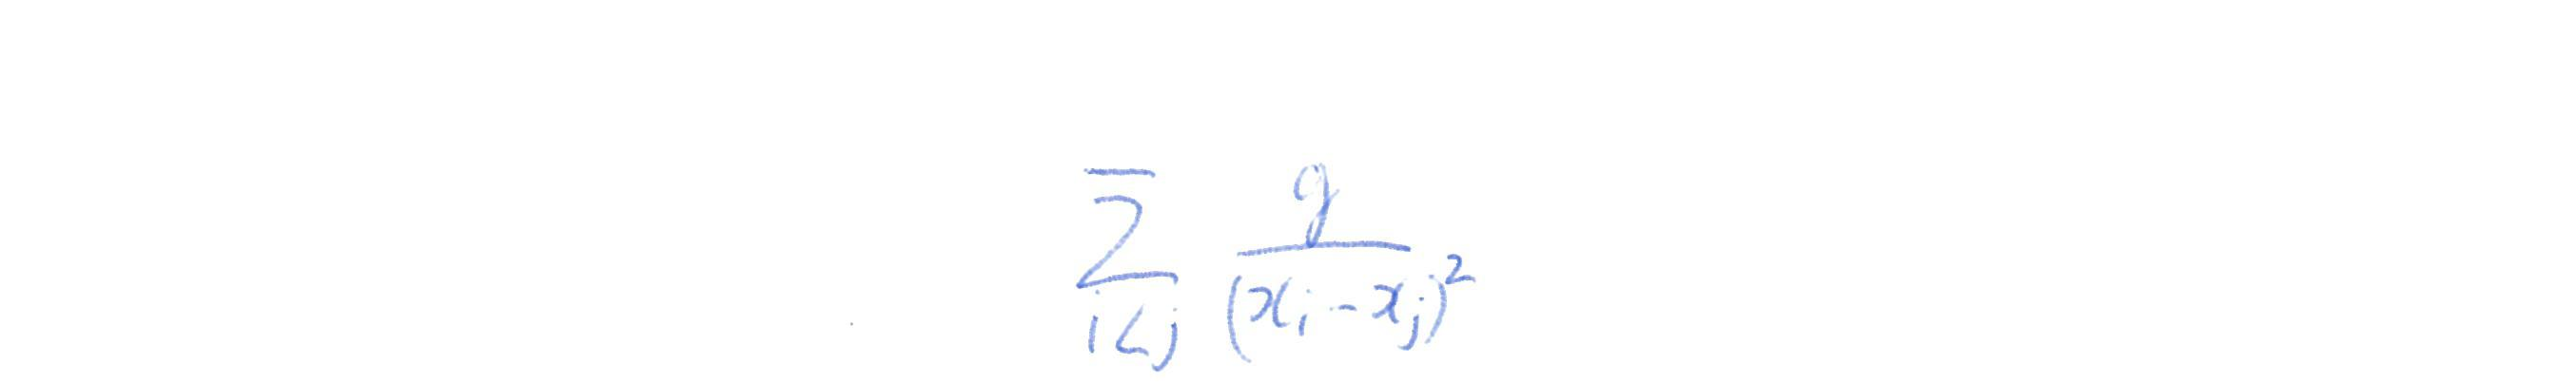 \sum_{i<j} \frac{g}{(x_i - x_j)^2}